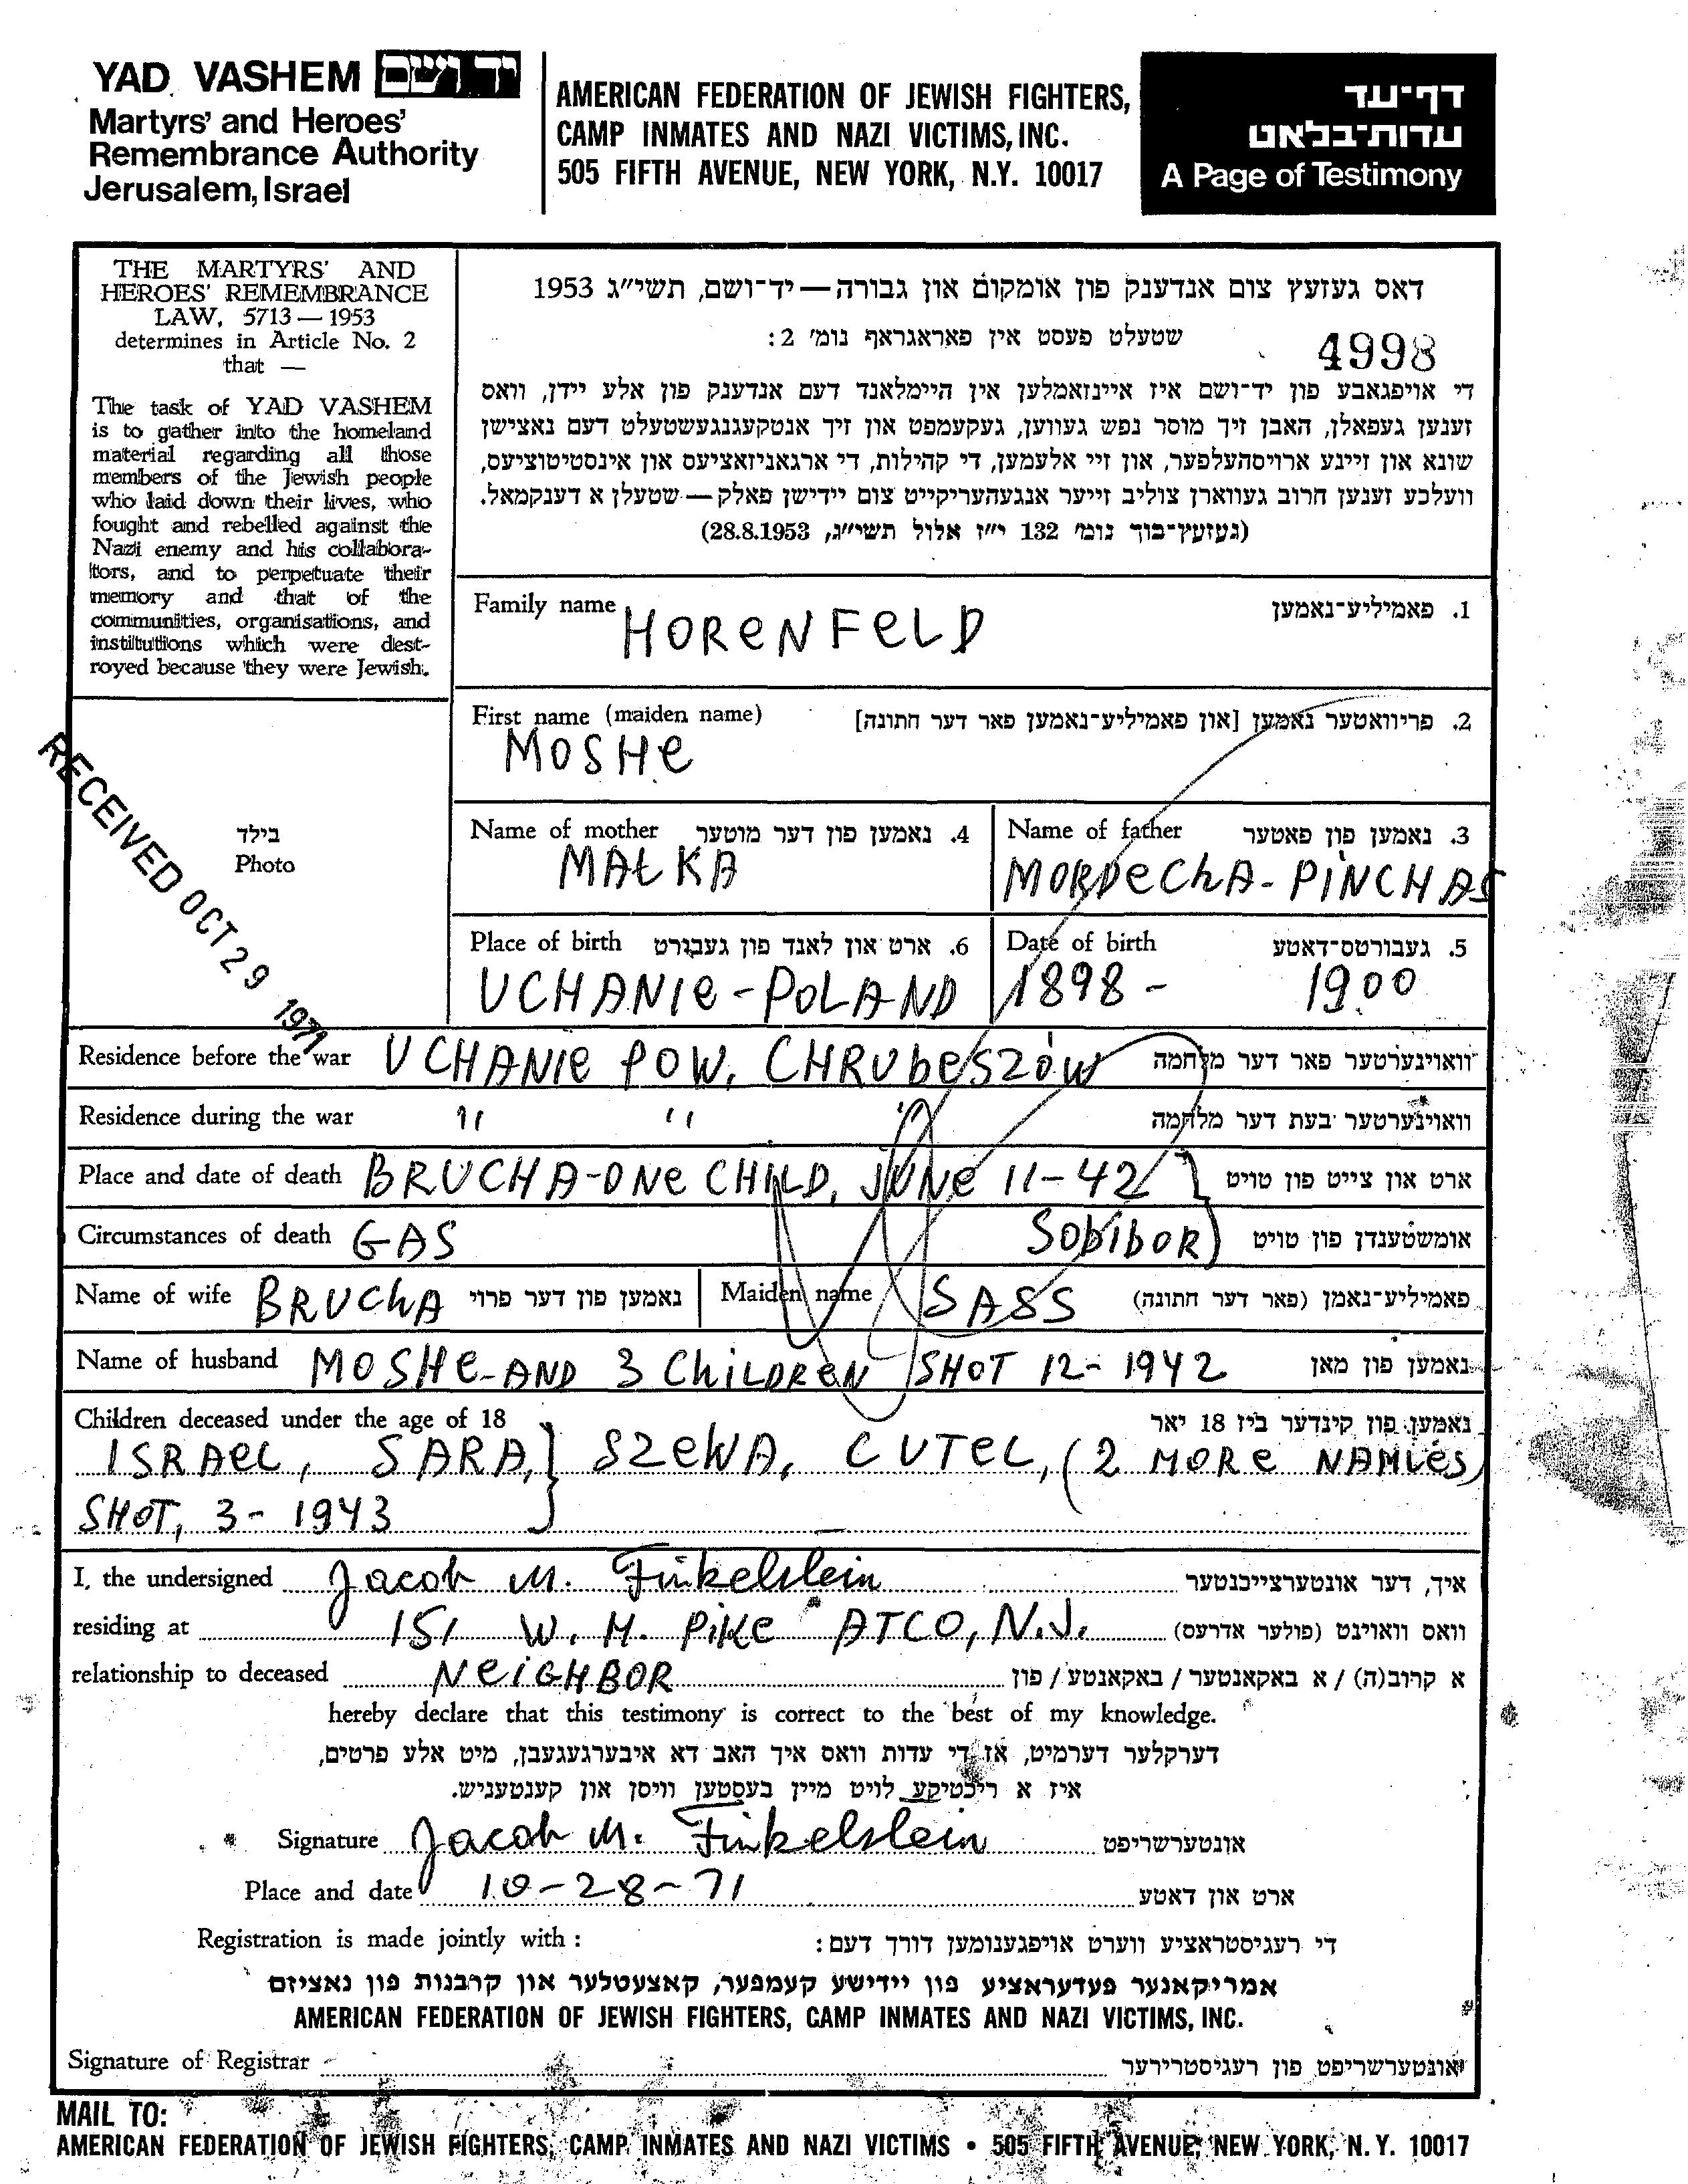 YAD VASHEM יד ושם
Martyrs' and Heroes'
Remembrance Authority
Jerusalem, Israel
AMERICAN FEDERATION OF JEWISH FIGHTERS,
CAMP INMATES AND NAZI VICTIMS, INC.
505 FIFTH AVENUE, NEW YORK, N.Y. 10017
דף-עד
עדות-בלאט
A Page of Testimony
THE MARTYRS' AND
HEROES' REMEMBRANCE
LAW, 5713 — 1953
determines in Article No. 2
that —
The task of YAD VASHEM
is to gather into the homeland
material regarding all those
members of the Jewish people
who laid down their lives, who
fought and rebelled against the
Nazi enemy and his collabora-
tors, and to perpetuate their
memory and that of the
communities, organisations, and
institutions which were dest-
royed because they were Jewish.
דאס געזעץ צום אנדענק פון אומקום און גבורה — יד-ושם, תשי״ג 1953
שטעלט פעסט אין פאראגראף נומ׳ 2:
4998
די אויפגאבע פון יד-ושם איז איינזאמלען אין היימלאנד דעם אנדענק פון אלע יידן, וואס
זענען געפאלן, האבן זיך מוסר נפש געווען, געקעמפט און זיך אנטקעגנגעשטעלט דעם נאצישן
שונא און זיינע ארויסהעלפער, און זיי אלעמען, די קהילות, די ארגאניזאציעס און אינסטיטוציעס,
וועלכע זענען חרוב געווארן צוליב זייער אנגעהעריקייט צום יידישן פאלק — שטעלן א דענקמאל.
(געזעץ-בוך נומ׳ 132 י״ז אלול תשי״ג, 28.8.1953)
Family name HORENFELD 1. פאמיליע-נאמען
First name (maiden name) 2. פריוואטער נאמען [און פאמיליע-נאמען פאר דער חתונה]
MOSHE
בילד
Photo
RECEIVED OCT 29 1971
Name of mother 4. נאמען פון דער מוטער
MAŁKA
Name of father 3. נאמען פון פאטער
MORDECHA-PINCHAS
Place of birth 6. ארט און לאנד פון געבורט
UCHANIE-POLAND
Date of birth 5. געבורטס-דאטע
1898 - 1900
Residence before the war UCHANIE POW. CHRUBESZÓW וואוינערטער פאר דער מלחמה
Residence during the war " " " וואוינערטער בעת דער מלחמה
Place and date of death BRUCHA-ONE CHILD, JUNE 11-42 } ארט און צייט פון טויט
Circumstances of death GAS SOBIBOR) אומשטענדן פון טויט
Name of wife BRUCHA נאמען פון דער פרוי Maiden name SASS פאמיליע-נאמן (פאר דער חתונה)
Name of husband MOSHE-AND 3 CHILDREN SHOT 12-1942 נאמען פון מאן
Children deceased under the age of 18 נאמען פון קינדער ביז 18 יאר
ISRAEL, SARA, } SZEWA, CUTEL, (2 MORE NAMIES)
SHOT, 3-1943
I, the undersigned Jacob M. Finkelstein איך, דער אונטערצייכנטער
residing at 151 W. H. PIKE ATCO, N.J. וואס וואוינט (פולער אדרעס)
relationship to deceased NEIGHBOR א קרוב(ה) / א באקאנטער / באקאנטע / פון
hereby declare that this testimony is correct to the best of my knowledge.
דערקלער דערמיט, אז די עדות וואס איך האב דא איבערגעגעבן, מיט אלע פרטים,
איז א ריכטיקע לויט מיין בעסטען וויסן און קענטעניש.
Signature Jacob M. Finkelstein אונטערשריפט
Place and date 10-28-71 ארט און דאטע
Registration is made jointly with : די רעגיסטראציע ווערט אויפגענומען דורך דעם:
אמריקאנער פעדעראציע פון יידישע קעמפער, קאצעטלער און קרבנות פון נאציזם
AMERICAN FEDERATION OF JEWISH FIGHTERS, CAMP INMATES AND NAZI VICTIMS, INC.
Signature of Registrar אונטערשריפט פון רעגיסטרירער
MAIL TO:
AMERICAN FEDERATION OF JEWISH FIGHTERS, CAMP INMATES AND NAZI VICTIMS • 505 FIFTH AVENUE, NEW YORK, N.Y. 10017